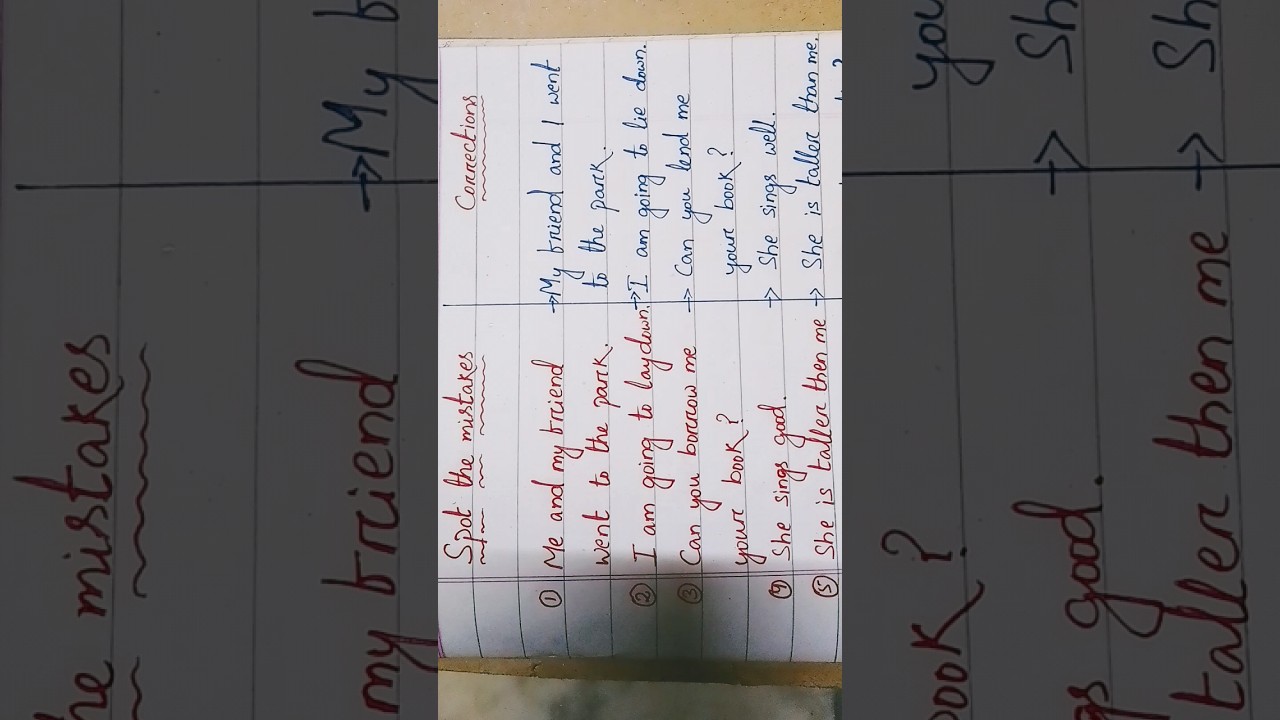 Spot the mistakes
Corrections
① Me and my friend
went to the park.
→ My friend and I went
to the park.
② I am going to lay down.
→ I am going to lie down.
③ Can you borrow me
your book?
→ Can you lend me
your book?
④ She sings good.
→ She sings well.
⑤ She is taller then me
→ She is taller than me.